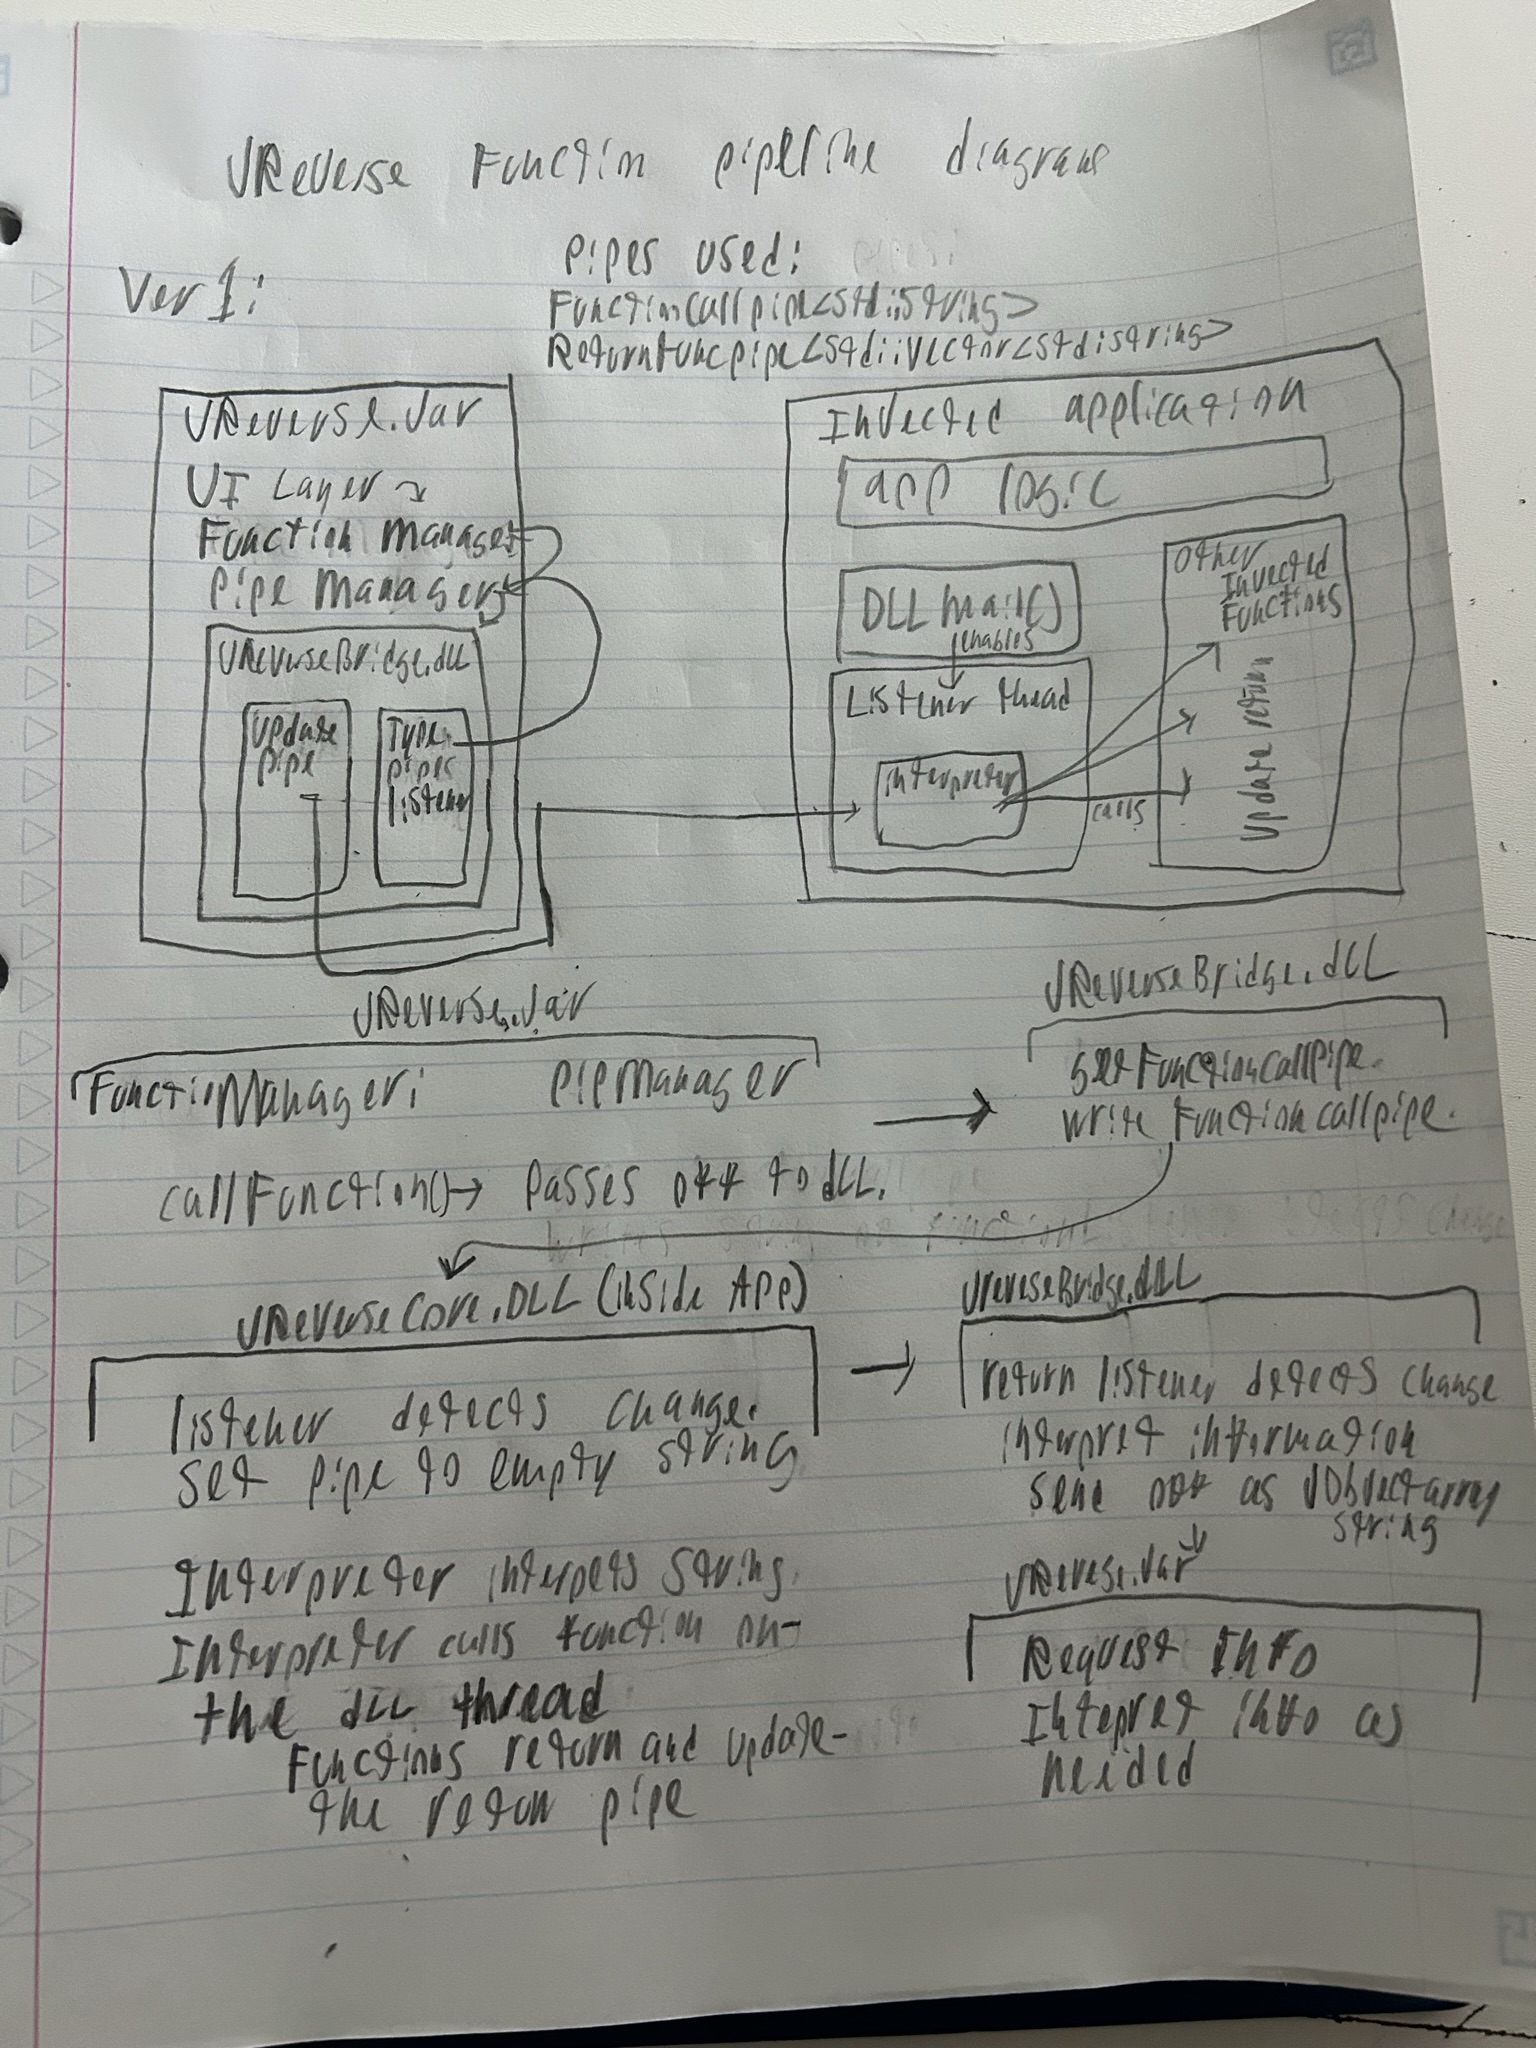 JReverse Function pipeline diagram
Ver 1:
Pipes used:
FunctionCallpipe<std::string>
ReturnFuncpipe<std::vector<std::string>
JReverse.Jar
UI Layer
Function Manager
Pipe Manager
JReverseBridge.dll
Update
pipe
Type
pipes
listener
Injected application
app logic
DLL main()
enables
Listener thead
interpreter
calls
Other
Injected
Functions
Update return
JReverse.Jar
FunctioManager: PipeManager
callFunction()→ Passes to dLL.
JReverseBridge.dLL
getFunctionCallPipe.
write Functioncallpipe.
JReverseCore.DLL (inside App)
listener detects change.
set pipe to empty string
Interpreter interpets string.
Interpreter calls function on-
the dLL thread
Functions return and update-
the retun pipe
JRevesеBridge.dLL
return listener detects change
interpret information
send as JObjectarray
string
JReverse.Jar
Request Info
Intepret info as
neided